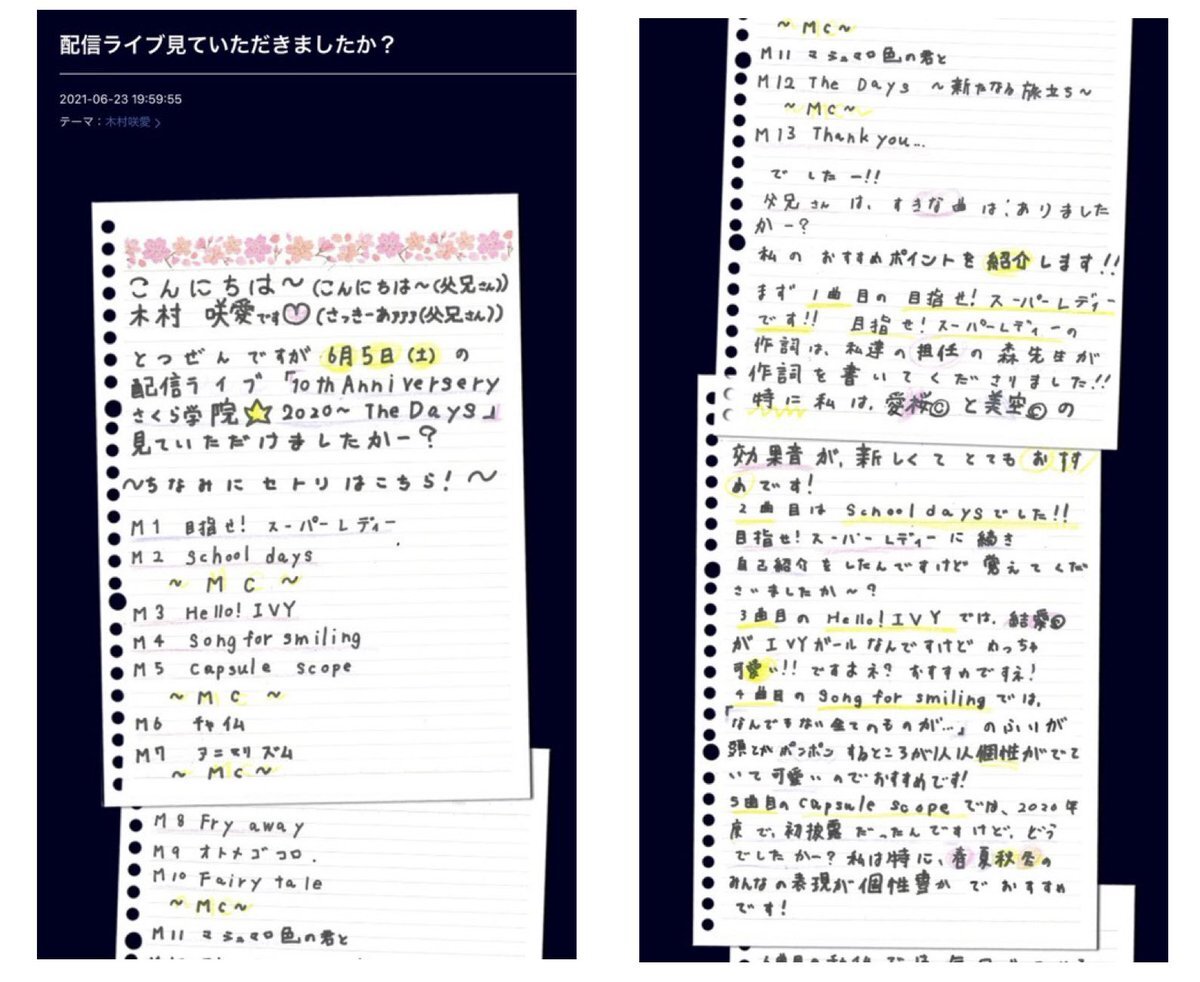 配信ライブ見ていただきましたか？
2021-06-23 19:59:55
テーマ：木村咲愛
こんにちは〜(こんにちは〜(父兄さん))
木村 咲愛です♡(さっきーあぅぅぅ(父兄さん))
とつぜんですが 6月5日(土)の
配信ライブ「10th Anniversery
さくら学院☆2020〜 The Days」
見ていただけましたかー？
〜ちなみにセトリはこちら！〜
M1 目指せ！スーパーレディー
M2 School days
〜 M C 〜
M3 Hello! IVY
M4 Song for smiling
M5 Capsule scope
〜 M C 〜
M6 チャイム
M7 アニマリズム
〜 M C 〜
M8 Fry away
M9 オトメゴコロ.
M10 Fairy tale
〜 M C 〜
M11 マシュマロ色の君と
〜 M C 〜
M11 マシュマロ色の君と
M12 The Days 〜新たなる旅立ち〜
〜 M C 〜
M13 Thank you...
でしたー!!
父兄さんは、すきな曲は、ありました
かー？
私のおすすめポイントを紹介します!!
まず 1曲目の目指せ！スーパーレディー
です!! 目指せ！スーパーレディーの
作詞は、私達の担任の森先生が
作詞を書いてくださりました!!
特に私は、愛桜©と美空©の
効果音が、新しくてとてもおすす
めです！
2曲目は School daysでした!!
目指せ！スーパーレディーに続き
自己紹介をしたんですけど覚えてくだ
さいましたか〜？
3曲目の Hello! IVY では、結愛©
が IVYガールなんですけど めっちゃ
可愛い!! ですよネ？おすすめですネ！
4曲目の Song for smiling では、
「なんでもない全てのものが…」のふりが
頭とかポンポンするところが1人1人個性がでて
いて可愛いのでおすすめです！
5曲目の Capsule scope では、2020年
度で、初披露だったんですけど、どう
でしたかー？私は特に、春夏秋冬の
みんなの表現が個性豊かでおすすめ
です！